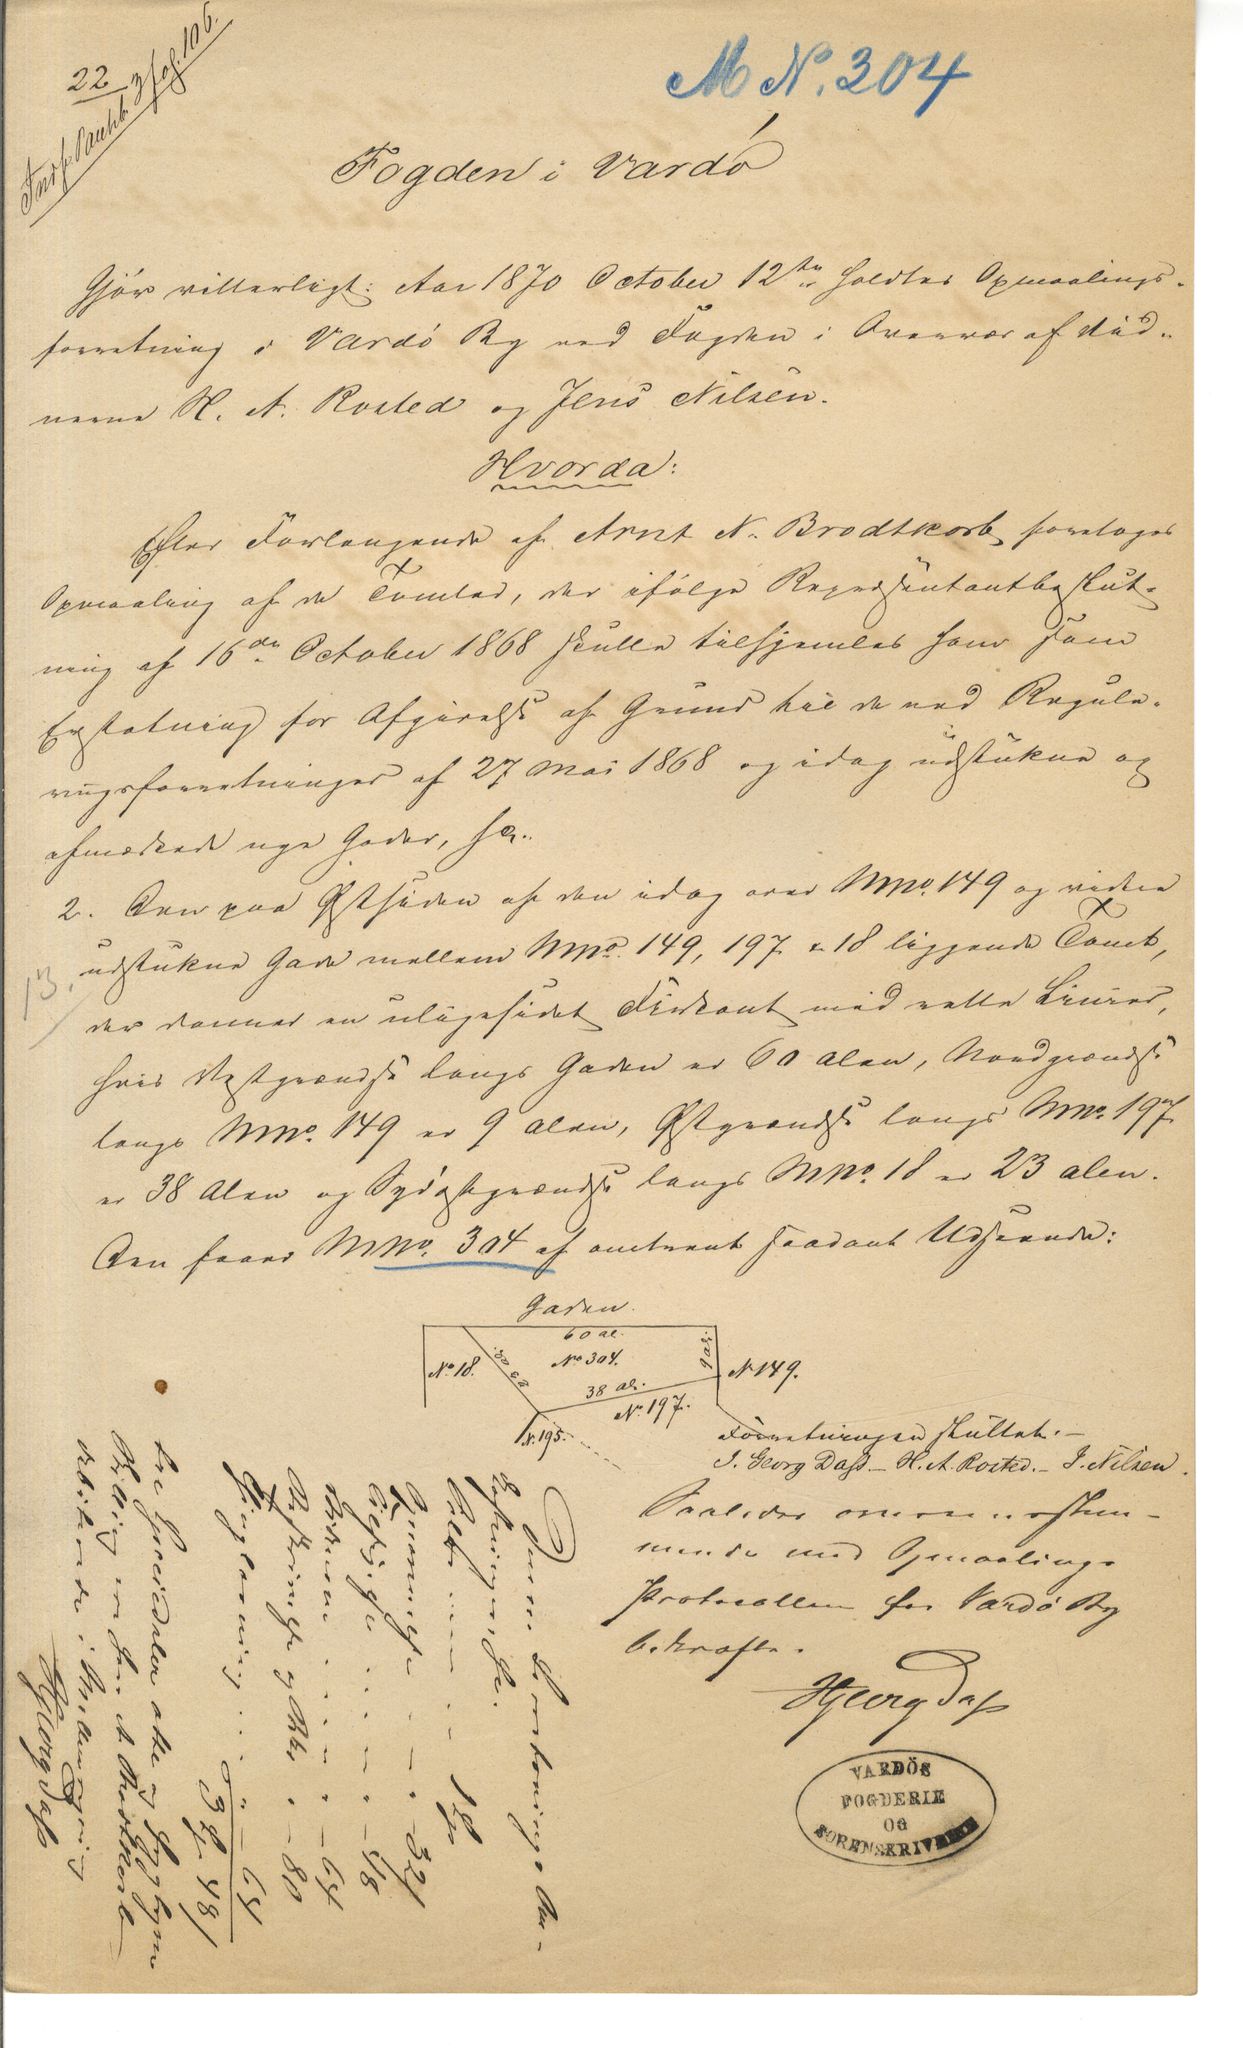 22
Indf. Panteb. 3 fol. 106.
M No. 304
Fogden i Vardö
Gjör vitterligt: Aar 1870 October 12te holdtes Opmaalings-
forretning i Vardö By ved Fogden i Overvær af Vid-
nerne H. A. Rosted og Jens Nilsen.
Hvorda:
Efter Forlangende af Arnt N. Brodtkorb foretoges
Opmaaling af de Tomter, der ifölge Repræsentantbeslut-
ning af 16de October 1868 skulle tilhjemles ham som
Erstatning for Afgivelse af Grund til de ved Regule-
ringsforretninger af 27 Mai 1868 og idag udstukne og
afmærkede nye Gader, sc.
2. Den paa Østsiden af den idag over MNo. 149 og videre
udstukne Gade mellem MNo. 149, 197 & 18 liggende Tomt,
13.
der danner en uligesidet Firkant med rette Linier,
hvis Vestgrændse langs Gaden er 60 Alen, Nordgrændse
langs MNo. 149 er 9 Alen, Østgrændse langs MNo. 197
er 38 Alen og Sydøstgrændse langs MNo. 18 er 23 Alen.
Den faaer MNo. 304 af omtrent saadant Udseende:
Gaden.
60 al.
No 18.
23 al.
No 304.
9 al.
N 149.
38 al.
No. 197.
N. 195.
Forretningen sluttet.-
J. Georg Dass - H. A. Rosted. - J. Nilsen.
Saaledes overensstem-
mende med Opmaalings
Protocollen for Vardö By
bekræftes.
HGeorg Dass
VARDÖS
FOGDERIE
OG
SORENSKRIVERIE
Denne Forretnings Be-
kostninger, sc.
1
32
48
Vidnerne - 64
- 80
Thinglæsning - 64
3 48
tre Specidaler otte og fyrgetyve
Skilling
HGeorg Dass